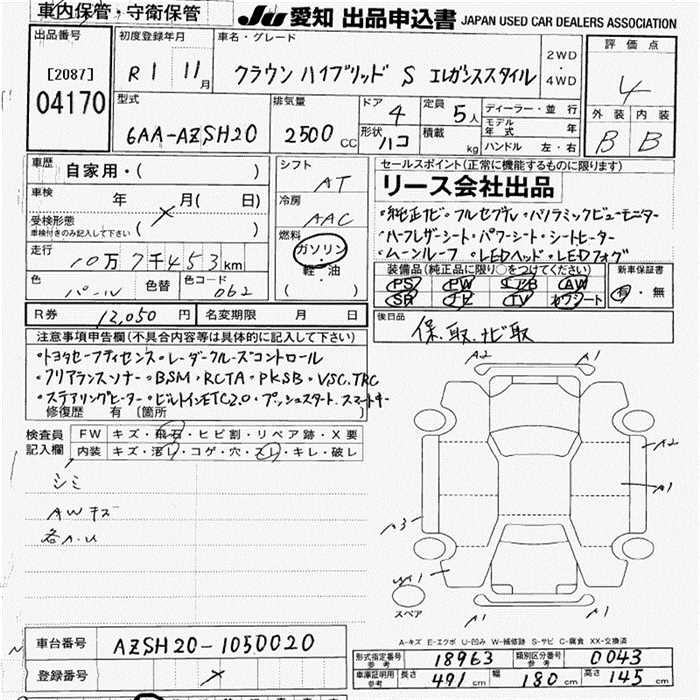 車内保管・守衛保管
JU 愛知 出品申込書 JAPAN USED CAR DEALERS ASSOCIATION
出品番号
[2087]
04170
初度登録年月
R1 11月
車名・グレード
クラウン ハイブリッド S エレガンススタイル
2WD
・
4WD
評価点
4
外装 内装
B B
型式
6AA-AZSH20
排気量
2500 CC
ドア 4
形状 ハコ
定員 5人
積載 kg
ディーラー・並行
モデル年式 年
ハンドル 左・右
車歴 自家用・( )
車検 年 月( 日)
受検形態
車検付きのみ記入して下さい ( )
走行
10万7千453km
色 パール
色替
色コード 062
シフト
AT
冷房
AAC
燃料
ガソリン
・
軽・油
( )
セールスポイント(正常に機能するものに限ります)
リース会社出品
・純正ナビ・フルセグTV・パノラミックビューモニター
・ハーフレザーシート・パワーシート・シートヒーター
・ムーンルーフ・LEDヘッド・LEDフォグ
装備品(純正品に限り○をつけてください)
PS PW エアB AW
SR ナビ TV カワシート
新車保証書
有・無
R券 12,050円
名変期限 月 日
後日品
保.取.ナビ取
注意事項申告欄(不具合内容等は具体的に記入して下さい)
・トヨタセーフティセンス・レーダークルーズコントロール
・クリアランスソナー・BSM・RCTA・PKSB・VSC.TRC
・ステアリングヒーター・ビルトインETC2.0・プッシュスタート.スマートキー
修復歴 有 〔箇所 〕
検査員
記入欄
FW キズ・飛石・ヒビ割・リペア跡・X要
内装 キズ・汚レ・コゲ・穴・スレ・キレ・破レ
シミ
AWキズ
各A.U
A2 A1
A2
A1
A3
W1
A1 A1
スペア
A-キズ E-エクボ U-凹み W-補修跡 S-サビ C-腐食 XX-交換済
車台番号 AZSH20-1050020
登録番号
形式指定番号
参考
18963
類別区分番号
参考
0043
車庫証明用
参考
長さ 491cm 幅 180cm 高さ 145cm